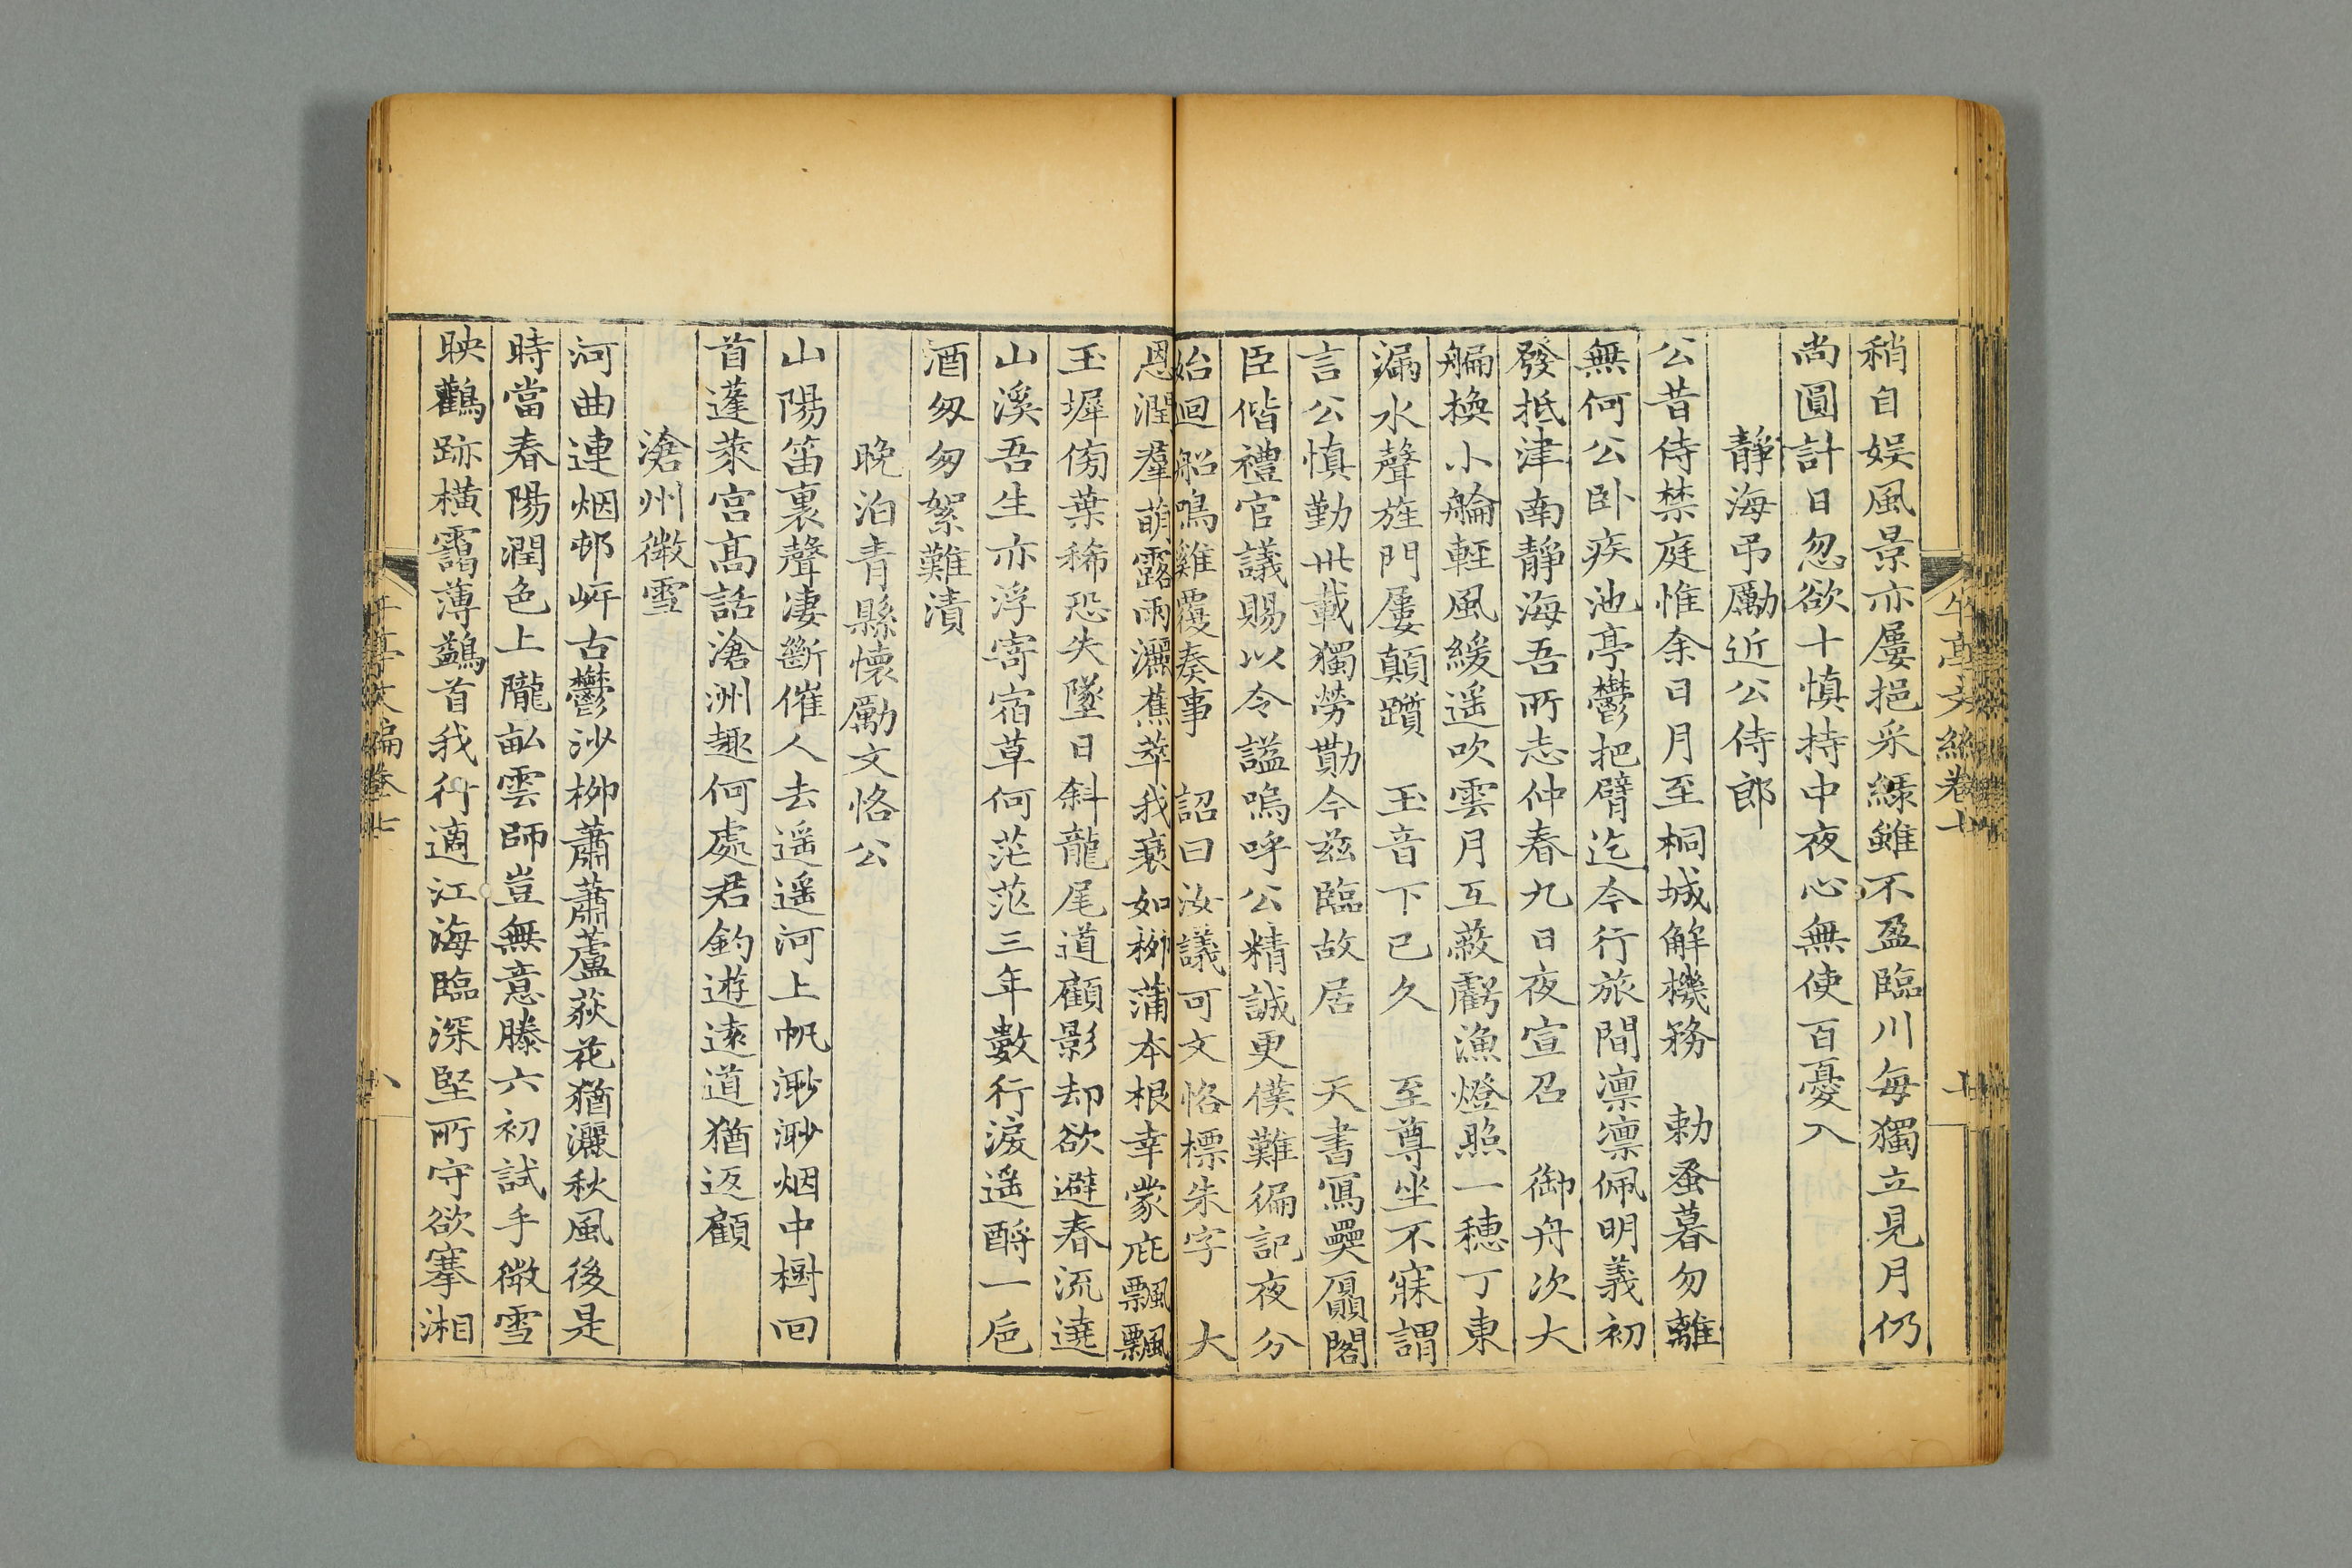 稍自娱風景亦屢挹采綠雖不盈臨川每獨立見月仍
尚圓計日忽欲十慎持中夜心無使百憂入
靜海弔勵近公侍郎
公昔侍禁庭惟余日月至桐城解機務　勅蚤暮勿離
無何公卧疾池亭鬱把臂迄今行旅間凛凛佩明義初
發抵津南靜海吾所志仲春九日夜宣召　御舟次大
艑換小艑輕風緩遥吹雲月互蔽虧漁燈照一穗丁東
漏水聲旌門屢顛躓　玉音下已久　至尊坐不寐謂
言公慎勤卅載獨勞勩今兹臨故居　天書寫奰屭閣
臣偕禮官議賜以令諡嗚呼公精誠更僕難徧記夜分
始迴船鳴雞覆奏事　詔曰汝議可文恪標朱字　大
恩潤羣萌露雨灑蕉萃我衰如栁蒲本根幸蒙庇飄飄
玉墀傍葉稀恐失墜日斜龍尾道顧影却欲避春流遶
山溪吾生亦浮寄宿草何茫茫三年數行淚遥酹一巵
酒匆匆絮難漬
晚泊青縣懷勵文恪公
山陽笛裏聲凄斷催人去遥遥河上帆渺渺烟中樹回
首蓬萊宫高話滄洲趣何處君釣遊逺道猶返顧
滄州微雪
河曲連烟邨岸古鬱沙栁蕭蕭蘆荻花猶灑秋風後是
時當春陽潤色上隴畝雲師豈無意滕六初試手微雪
映鸛跡横靄薄鷁首我行適江海臨深堅所守欲搴湘
午亭文編卷七
八
午亭文編卷七